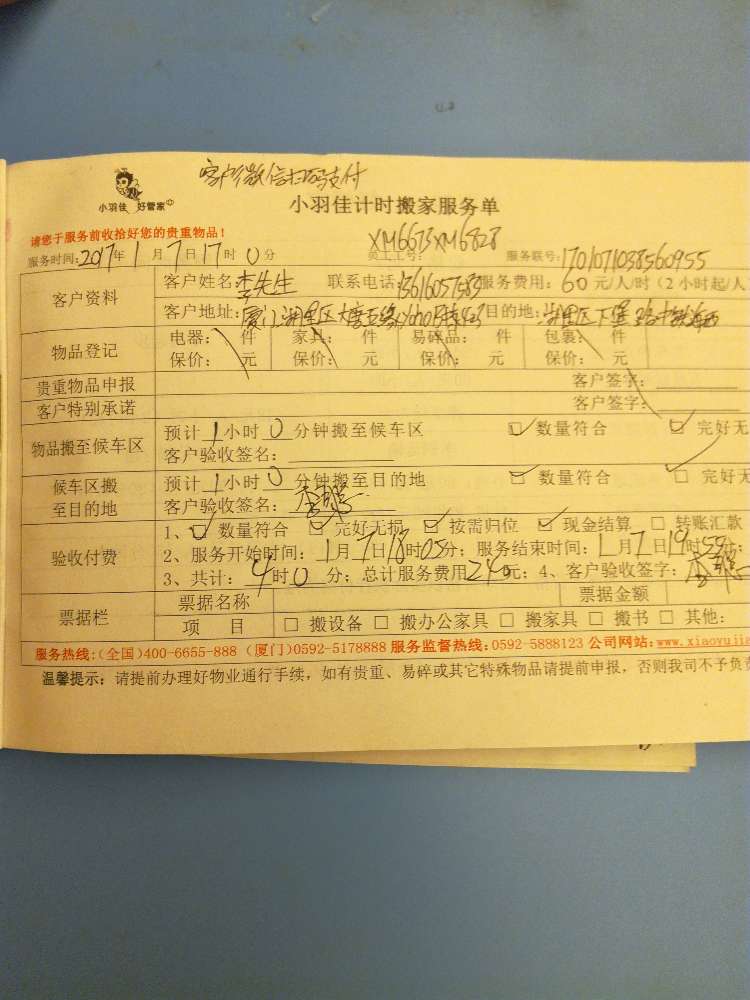 客户微信扫码支付
小羽佳 好管家
小羽佳计时搬家服务单
请您于服务前收拾好您的贵重物品!
服务时间:2017年1月7日17时0分 员工工号:XM6673XM6828 服务联号:1701071038560955
客户资料 客户姓名:李先生 联系电话:13616057583 服务费用:60元/人/时(2小时起/人
客户地址:厦门湖里区 目的地:湖里区下堡
物品登记 电器: 件 家具: 件 易碎品: 件 包裹: 件
保价: 元 保价: 元 保价: 元 保价: 元
贵重物品申报 客户签字:
客户特别承诺 客户签字:
物品搬至候车区 预计1小时0分钟搬至候车区 ☑数量符合 ☑完好无
客户验收签名:
候车区搬至目的地 预计1小时0分钟搬至目的地 ☑数量符合 □完好无
客户验收签名:李
验收付费 1、☑数量符合 □完好无损 ☑按需归位 ☑现金结算 □转账汇款
2、服务开始时间:1月7日18时05分;服务结束时间:1月7日19时59分;
3、共计:4时0分;总计服务费用240元;4、客户验收签字:李
票据栏 票据名称 票据金额
项 目 □搬设备 □搬办公家具 □搬家具 □搬书 □其他:
服务热线:(全国)400-6655-888 (厦门)0592-5178888 服务监督热线:0592-5888123 公司网站:www.xiaoyujia
温馨提示:请提前办理好物业通行手续,如有贵重、易碎或其它特殊物品请提前申报,否则我司不予负责